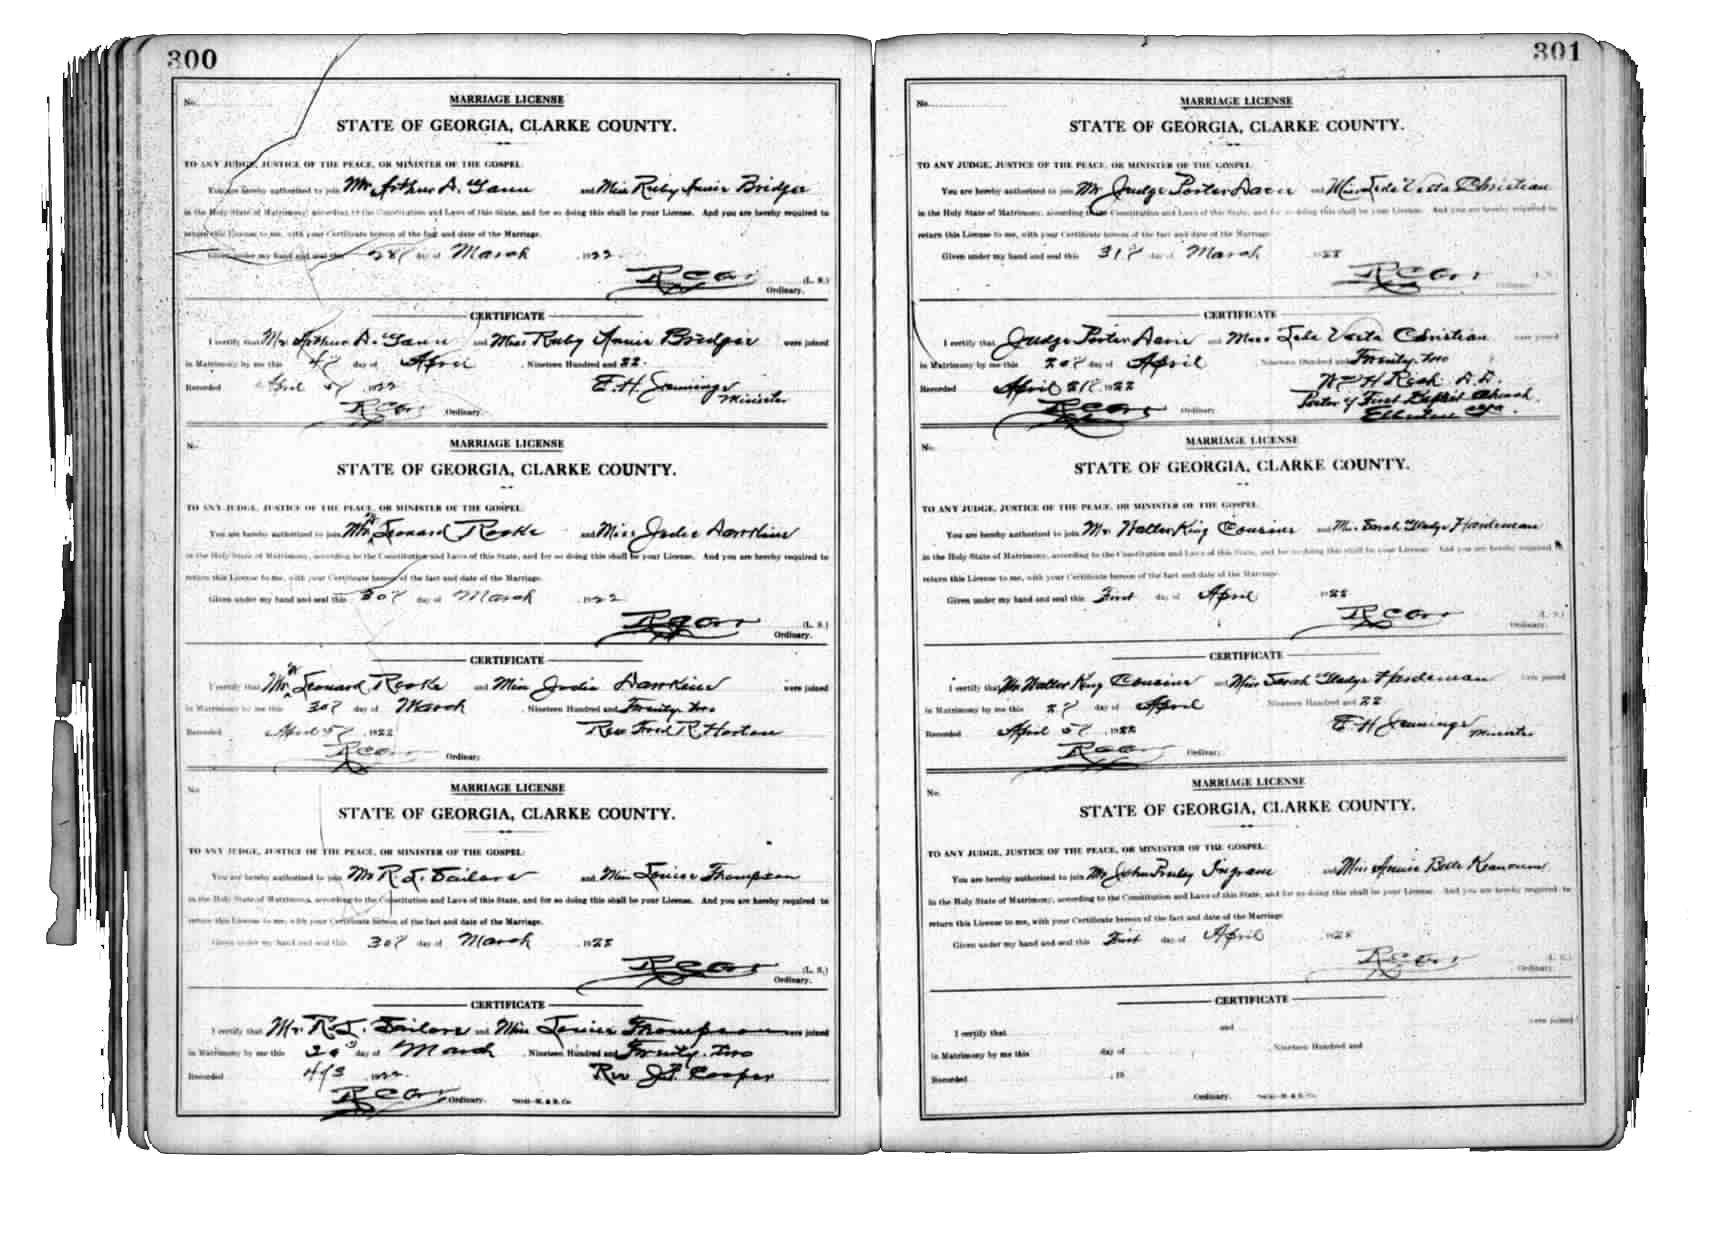 300
No.
MARRIAGE LICENSE
STATE OF GEORGIA, CLARKE COUNTY.
TO ANY JUDGE, JUSTICE OF THE PEACE, OR MINISTER OF THE GOSPEL:
You are hereby authorized to join Mr Arthur A. and Miss Ruby Annie Bridges
in the Holy State of Matrimony, according to the Constitution and Laws of this State, and for so doing this shall be your License. And you are hereby required to
return this License to me, with your Certificate hereon of the fact and date of the Marriage.
Given under my hand and seal this 28 day of March 1922
R C Orr (L. S.)
Ordinary.
CERTIFICATE
I certify that Mr Arthur A. and Miss Ruby Annie Bridges were joined
in Matrimony by me this 4 day of April Nineteen Hundred and 22.
Recorded April 5 1922 E. H. Jennings
R C Orr Ordinary. Minister
No.
MARRIAGE LICENSE
STATE OF GEORGIA, CLARKE COUNTY.
TO ANY JUDGE, JUSTICE OF THE PEACE, OR MINISTER OF THE GOSPEL:
You are hereby authorized to join Mr Leonard Rooke and Miss Judie Hawkins
in the Holy State of Matrimony, according to the Constitution and Laws of this State, and for so doing this shall be your License. And you are hereby required to
return this License to me, with your Certificate hereon of the fact and date of the Marriage.
Given under my hand and seal this 30 day of March 1922
R C Orr (L. S.)
Ordinary.
CERTIFICATE
I certify that Mr Leonard Rooke and Miss Judie Hawkins were joined
in Matrimony by me this 30 day of March Nineteen Hundred and Twenty two
Recorded April 5 1922 Rev Fred R. Horton
R C Orr Ordinary.
No.
MARRIAGE LICENSE
STATE OF GEORGIA, CLARKE COUNTY.
TO ANY JUDGE, JUSTICE OF THE PEACE, OR MINISTER OF THE GOSPEL:
You are hereby authorized to join Mr R. L. Sailors and Miss Louise Thompson
in the Holy State of Matrimony, according to the Constitution and Laws of this State, and for so doing this shall be your License. And you are hereby required to
return this License to me, with your Certificate hereon of the fact and date of the Marriage.
Given under my hand and seal this 30 day of March 1922
R C Orr (L. S.)
Ordinary.
CERTIFICATE
I certify that Mr. R. L. Sailors and Miss Louise Thompson were joined
in Matrimony by me this day of March Nineteen Hundred and Twenty two
Recorded 4/3 1922. Rev J. F. Cooper
R C Orr Ordinary.
301
No.
MARRIAGE LICENSE
STATE OF GEORGIA, CLARKE COUNTY.
TO ANY JUDGE, JUSTICE OF THE PEACE, OR MINISTER OF THE GOSPEL:
You are hereby authorized to join Mr Judge Porter and Miss Vesta Christian
in the Holy State of Matrimony, according to the Constitution and Laws of this State, and for so doing this shall be your License. And you are hereby required to
return this License to me, with your Certificate hereon of the fact and date of the Marriage.
Given under my hand and seal this 31 day of March 1922
R C Orr (L. S.)
Ordinary.
CERTIFICATE
I certify that Judge Porter and Miss Vesta Christian were joined
in Matrimony by me this 20 day of April Nineteen Hundred and Twenty two
Recorded April 21 1922 H Rich D. D.
R C Orr Ordinary Pastor of First Baptist Church
Elberton Ga.
No.
MARRIAGE LICENSE
STATE OF GEORGIA, CLARKE COUNTY.
TO ANY JUDGE, JUSTICE OF THE PEACE, OR MINISTER OF THE GOSPEL:
You are hereby authorized to join Mr. Walter King Cousins and Miss Sarah Gladys Hardeman
in the Holy State of Matrimony, according to the Constitution and Laws of this State, and for so doing this shall be your License. And you are hereby required to
return this License to me, with your Certificate hereon of the fact and date of the Marriage.
Given under my hand and seal this First day of April 1922
R C Orr (L. S.)
Ordinary.
CERTIFICATE
I certify that Mr Walter King Cousins and Miss Sarah Gladys Hardeman were joined
in Matrimony by me this 2 day of April Nineteen Hundred and 22
Recorded April 5 1922 E. H Jennings
R C Orr Ordinary. Minister
No.
MARRIAGE LICENSE
STATE OF GEORGIA, CLARKE COUNTY.
TO ANY JUDGE, JUSTICE OF THE PEACE, OR MINISTER OF THE GOSPEL:
You are hereby authorized to join Mr John Ingram and Miss Annie Belle
in the Holy State of Matrimony, according to the Constitution and Laws of this State, and for so doing this shall be your License. And you are hereby required to
return this License to me, with your Certificate hereon of the fact and date of the Marriage
Given under my hand and seal this First day of April 1922
R C Orr (L. S.)
Ordinary.
CERTIFICATE
I certify that and were joined
in Matrimony by me this day of Nineteen Hundred and
Recorded , 19
Ordinary.